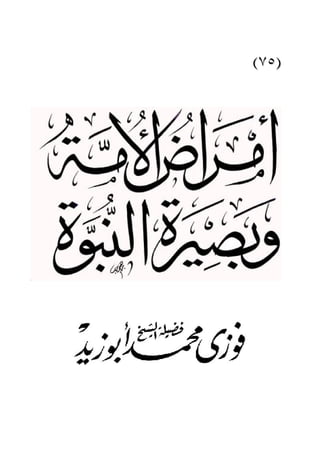 (٧٥)
أمراض الأمة
وبصيرة النبوة
فضيلة الشيخ
فوزى محمد أبوزيد